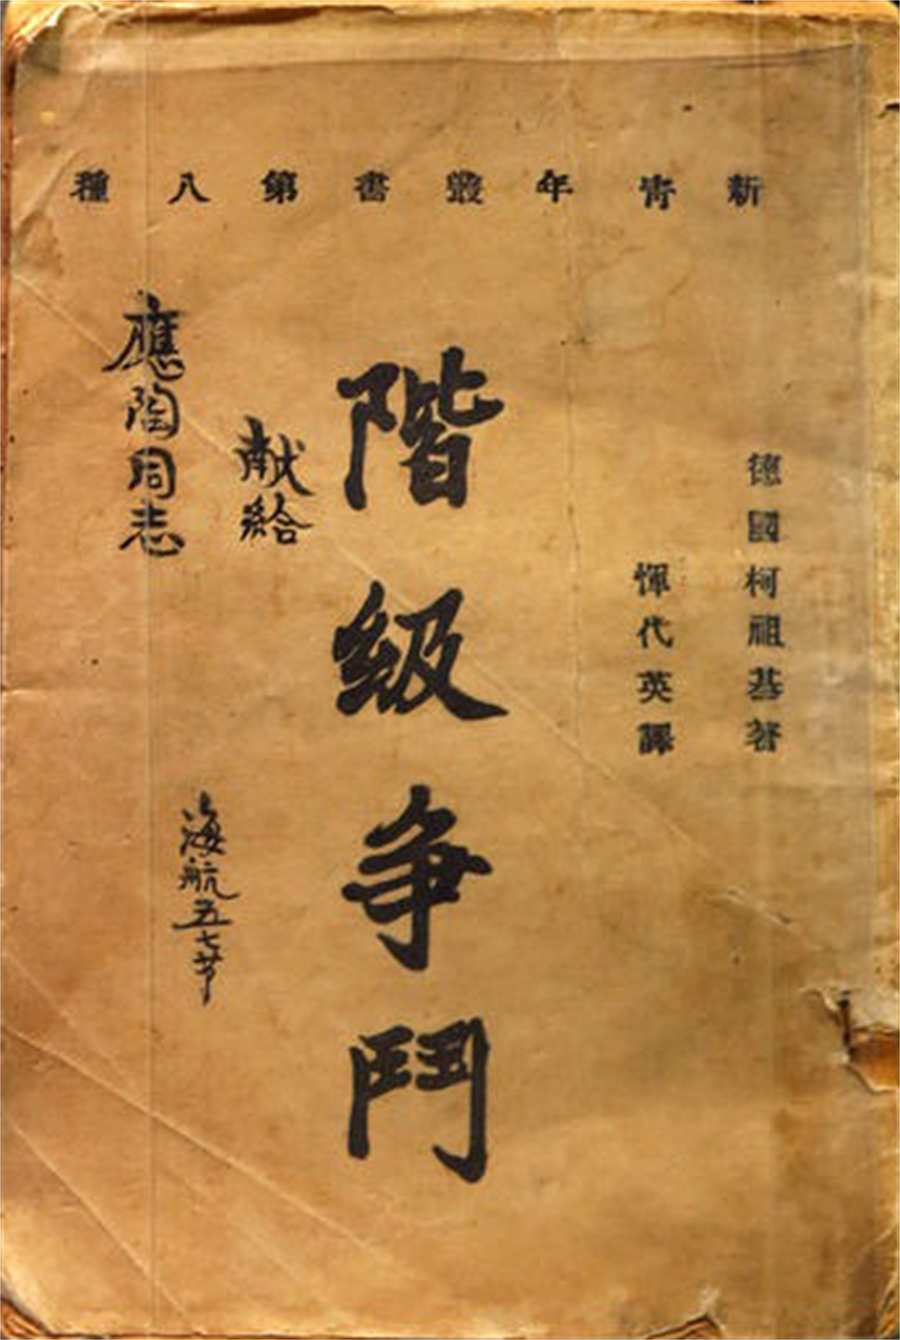 新青年叢書第八種
德國柯祖基著
惲代英譯
階級爭鬥
献給
應陶同志
海航五七节